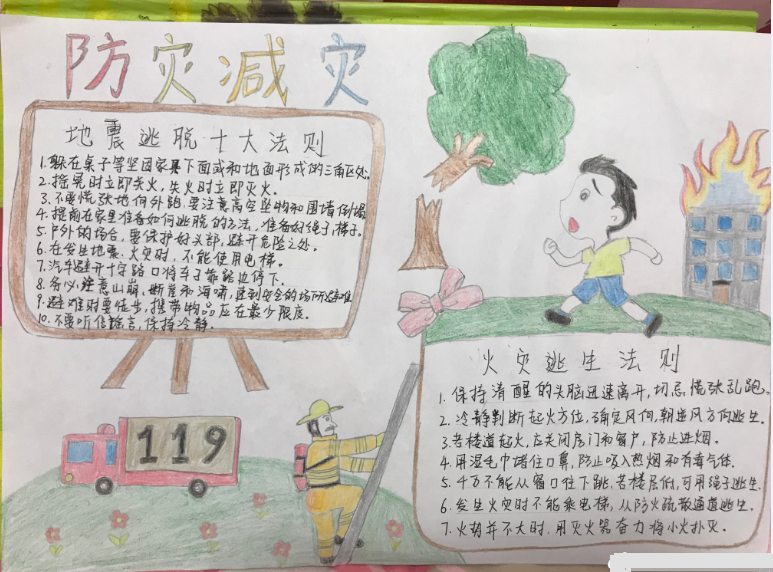 防灾减灾
地震逃脱十大法则
1.躲在桌子等坚固家具下面或和地面形成的三角区处。
2.摇晃时立即关火,失火时立即灭火。
3.不要慌张地向外跑,要注意高空坠物和围墙倒塌
4.提前在家里准备如何逃脱的方法,准备好绳子,梯子。
5.户外的场合,要保护好头部,避开危险之处。
6.在发生地震、火灾时,不能使用电梯。
7.汽车避开十字路口将车子靠路边停下.
8.务必注意山崩、断崖和海啸,
9.避难时要徒步,携带物品应在最少限度。
10.不要听信谣言,保持冷静.
119
火灾逃生法则
1.保持清醒的头脑迅速离开,切忌慌张乱跑.
2.冷静判断起火方位,确定风向,朝逆风方向逃生.
3.若楼道起火,应关闭房门和窗户,防止进烟.
4.用湿毛巾堵住口鼻,防止吸入热烟和有毒气体.
5.千万不能从窗口往下跳,若楼层低,可用绳子逃生.
6.发生火灾时不能乘电梯,从防火疏散通道逃生.
7.火势并不大时,用灭火器奋力将小火扑灭.